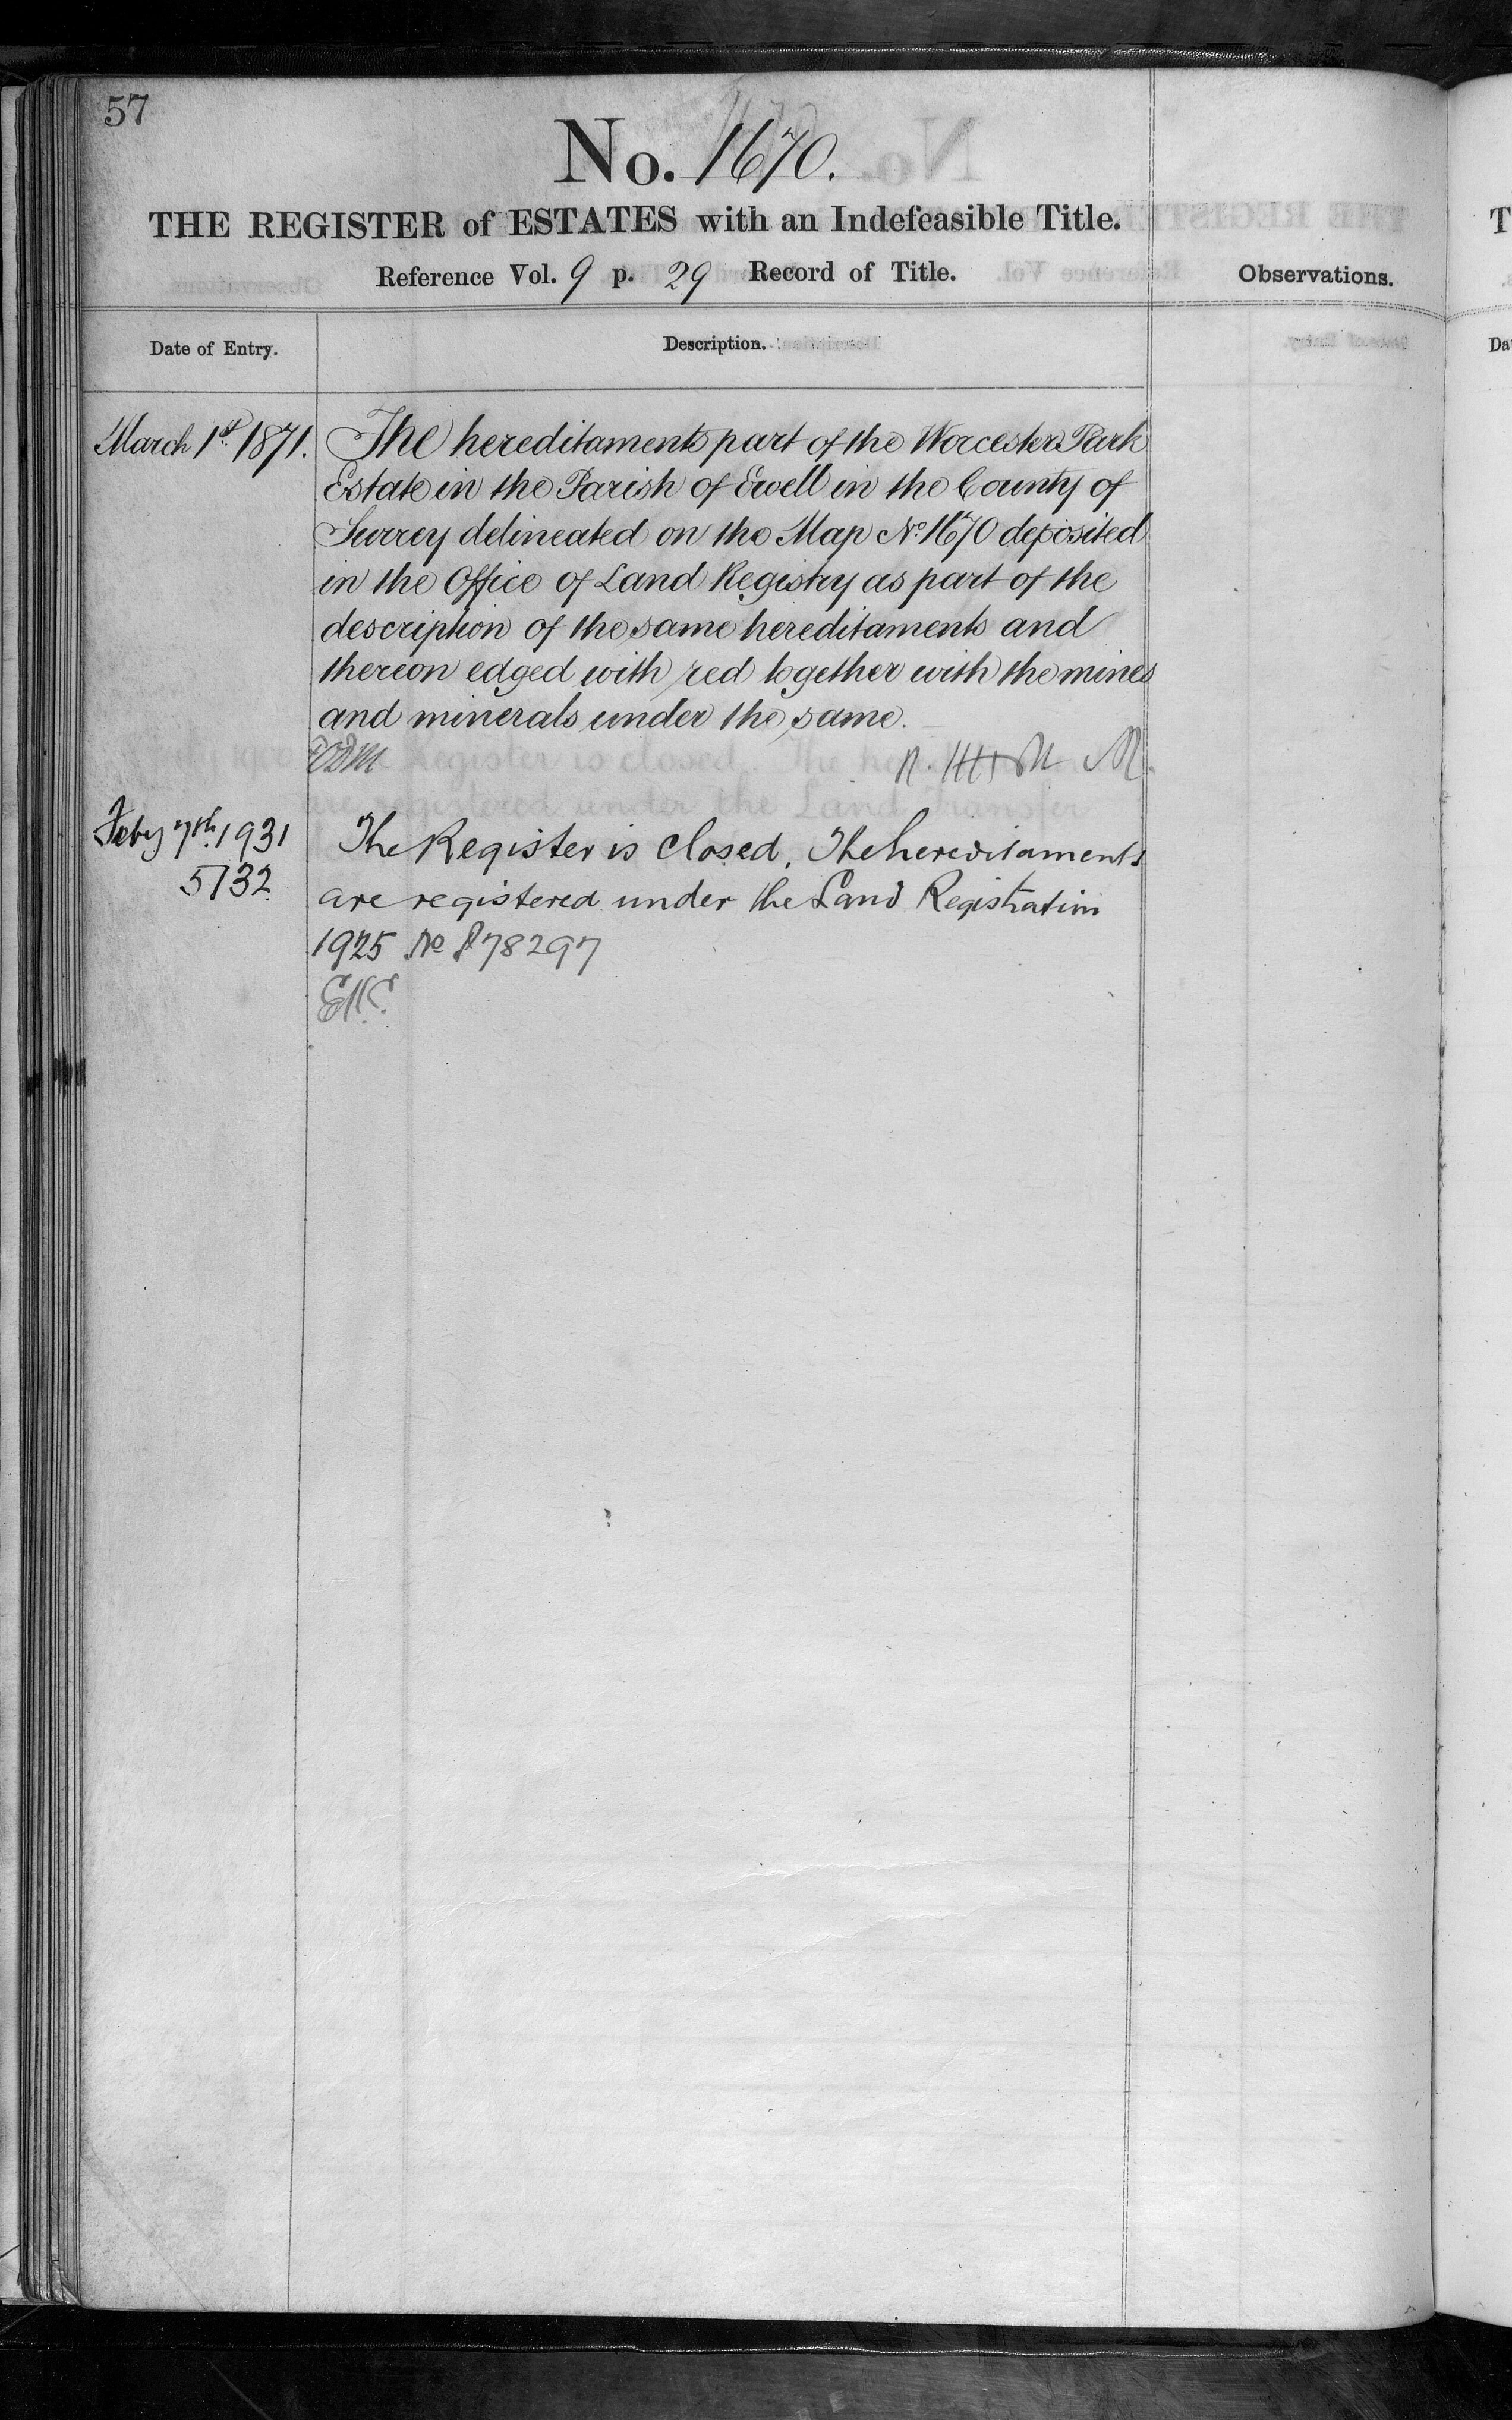 57
No. 1670.
THE REGISTER of ESTATES with an Indefeasible Title.
Reference Vol. 9 p. 29 Record of Title.
Observations.
Date of Entry.
Description.
March 1st. 1871.
The hereditaments part of the Worcester Park
Estate in the Parish of Ewell in the County of
Surrey delineated on the Map No. 1670 deposited
in the Office of Land Registry as part of the
description of the same hereditaments and
thereon edged with red together with the mines
and minerals under the same.
Feby 7th. 1931
5132
The Register is closed. The hereditaments
are registered under the Land Registration
1925 No 78297